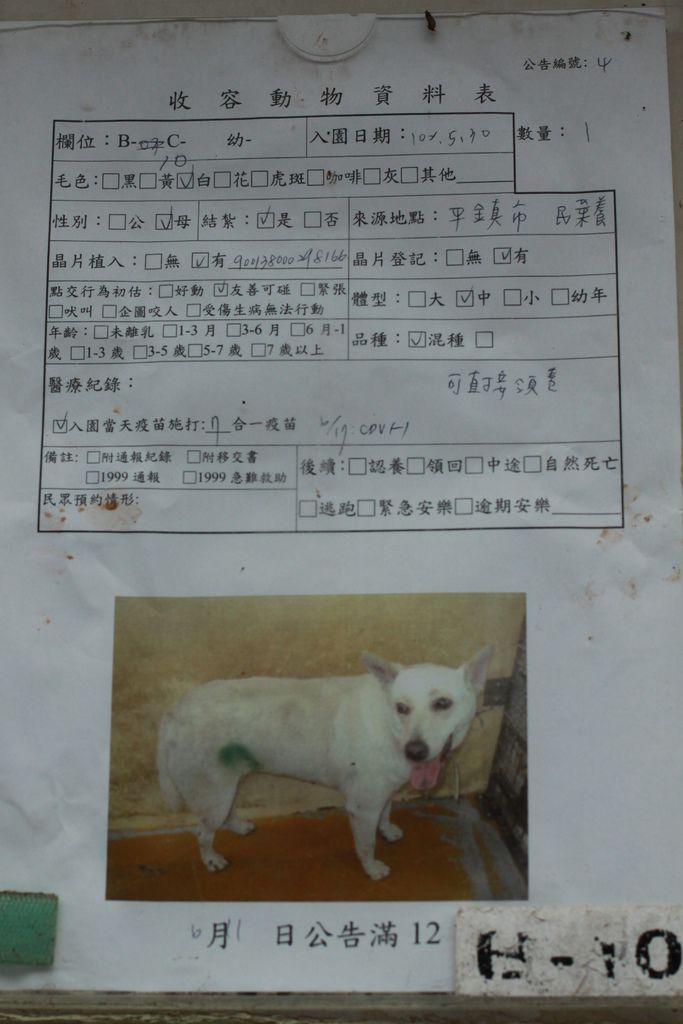 公告編號: 4
收容動物資料表
欄位：B-07C- 幼- 入園日期：102.5.30 數量：1
10
毛色：□黑□黃☑白□花□虎斑□咖啡□灰□其他
性別：□公 ☑母 結紮：☑是 □否 來源地點：平鎮市 民棄養
晶片植入：□無 ☑有 900138000298166 晶片登記：□無 ☑有
點交行為初估：□好動 ☑友善可碰 □緊張
□吠叫 □企圖咬人 □受傷生病無法行動
體型：□大 ☑中 □小 □幼年
年齡：□未離乳 □1-3 月 □3-6 月 □6 月-1
歲 □1-3 歲 □3-5 歲□5-7 歲 □7 歲以上
品種：☑混種 □
醫療紀錄： 可直接領養
☑入園當天疫苗施打:7合一疫苗 6/17: CDV+1
備註: □附通報紀錄 □附移交書
□1999 通報 □1999 急難救助
後續：□認養□領回□中途□自然死亡
民眾預約情形:
□逃跑□緊急安樂□逾期安樂
6月11日公告滿 12
H-10